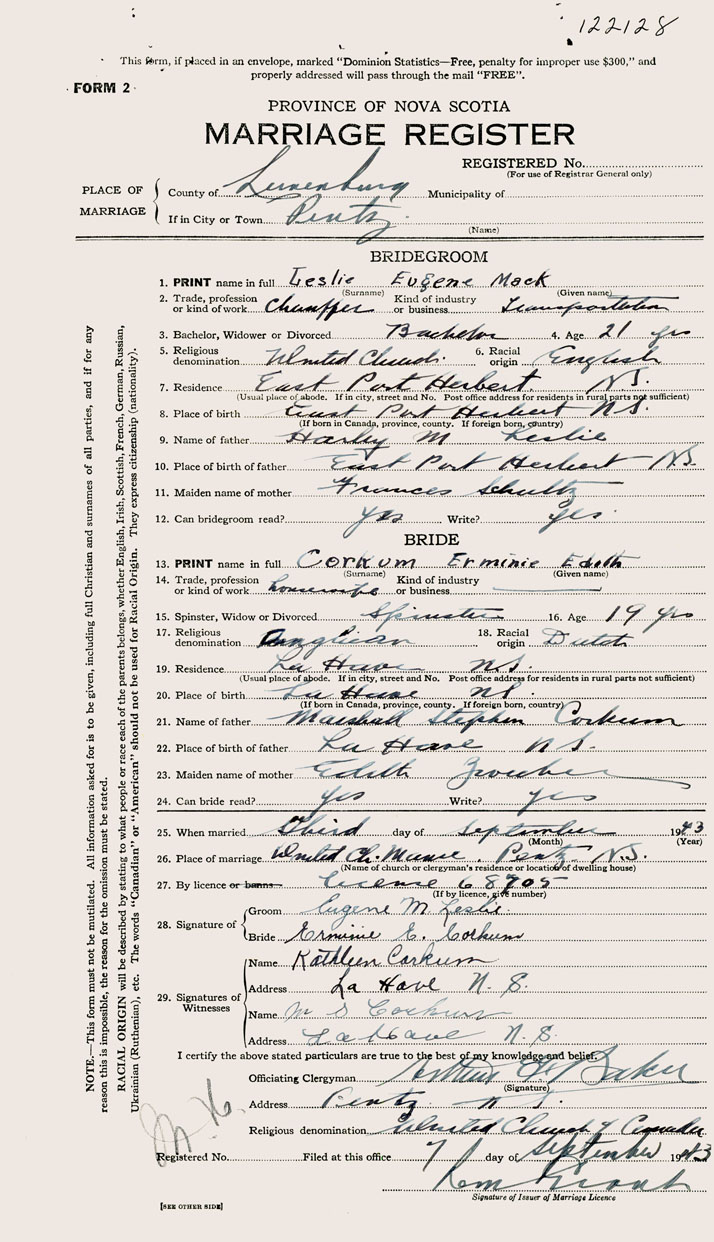 122128
This form, if placed in an envelope, marked "Dominion Statistics—Free, penalty for improper use $300," and
properly addressed will pass through the mail "FREE".
FORM 2
PROVINCE OF NOVA SCOTIA
MARRIAGE REGISTER
REGISTERED No.
(For use of Registrar General only)
PLACE OF MARRIAGE
County of Lunenburg Municipality of
If in City or Town Pentz
(Name)
BRIDEGROOM
1. PRINT name in full Leslie Eugene Mack
(Surname) (Given name)
2. Trade, profession or kind of work Chauffer Kind of industry or business Transportation
3. Bachelor, Widower or Divorced Bachelor 4. Age 21 yrs
5. Religious denomination United Church 6. Racial origin English
7. Residence East Port Herbert N.S.
(Usual place of abode. If in city, street and No. Post office address for residents in rural parts not sufficient)
8. Place of birth East Port Herbert N.S.
(If born in Canada, province, county. If foreign born, country)
9. Name of father Harley M Leslie
10. Place of birth of father East Port Herbert N.S.
11. Maiden name of mother Frances Shultz
12. Can bridegroom read? yes Write? yes
BRIDE
13. PRINT name in full Corkum Erminie Edith
(Surname) (Given name)
14. Trade, profession or kind of work housewife Kind of industry or business
15. Spinster, Widow or Divorced Spinster 16. Age 19 yrs
17. Religious denomination Anglican 18. Racial origin Dutch
19. Residence La Have N.S.
(Usual place of abode. If in city, street and No. Post office address for residents in rural parts not sufficient)
20. Place of birth La Have N.S.
(If born in Canada, province, county. If foreign born, country)
21. Name of father Marshall Stephen Corkum
22. Place of birth of father La Have N.S.
23. Maiden name of mother Edith
24. Can bride read? yes Write? yes
25. When married Third day of September 1943
(Month) (Year)
26. Place of marriage United Ch. Manse, Pentz, N.S.
(Name of church or clergyman's residence or location of dwelling house)
27. By licence or banns License 68905
(If by licence, give number)
28. Signature of
Groom Eugene M Leslie
Bride Erminie E. Corkum
29. Signatures of Witnesses
Name Kathleen Corkum
Address La Have N. S.
Name M S Corkum
Address La Have N. S.
I certify the above stated particulars are true to the best of my knowledge and belief.
Officiating Clergyman Arthur Baker
(Signature)
Address Pentz N S.
Religious denomination United Church of Canada
Registered No. Filed at this office 7 day of September 1943
Signature of Issuer of Marriage Licence
[SEE OTHER SIDE]
NOTE.—This form must not be mutilated. All information asked for is to be given, including full Christian and surnames of all parties, and if for any
reason this is impossible, the reason for the omission must be stated.
RACIAL ORIGIN will be described by stating to what people or race each of the parents belongs, whether English, Irish, Scottish, French, German, Russian,
Ukrainian (Ruthenian), etc. The words "Canadian" or "American" should not be used for Racial Origin. They express citizenship (nationality).